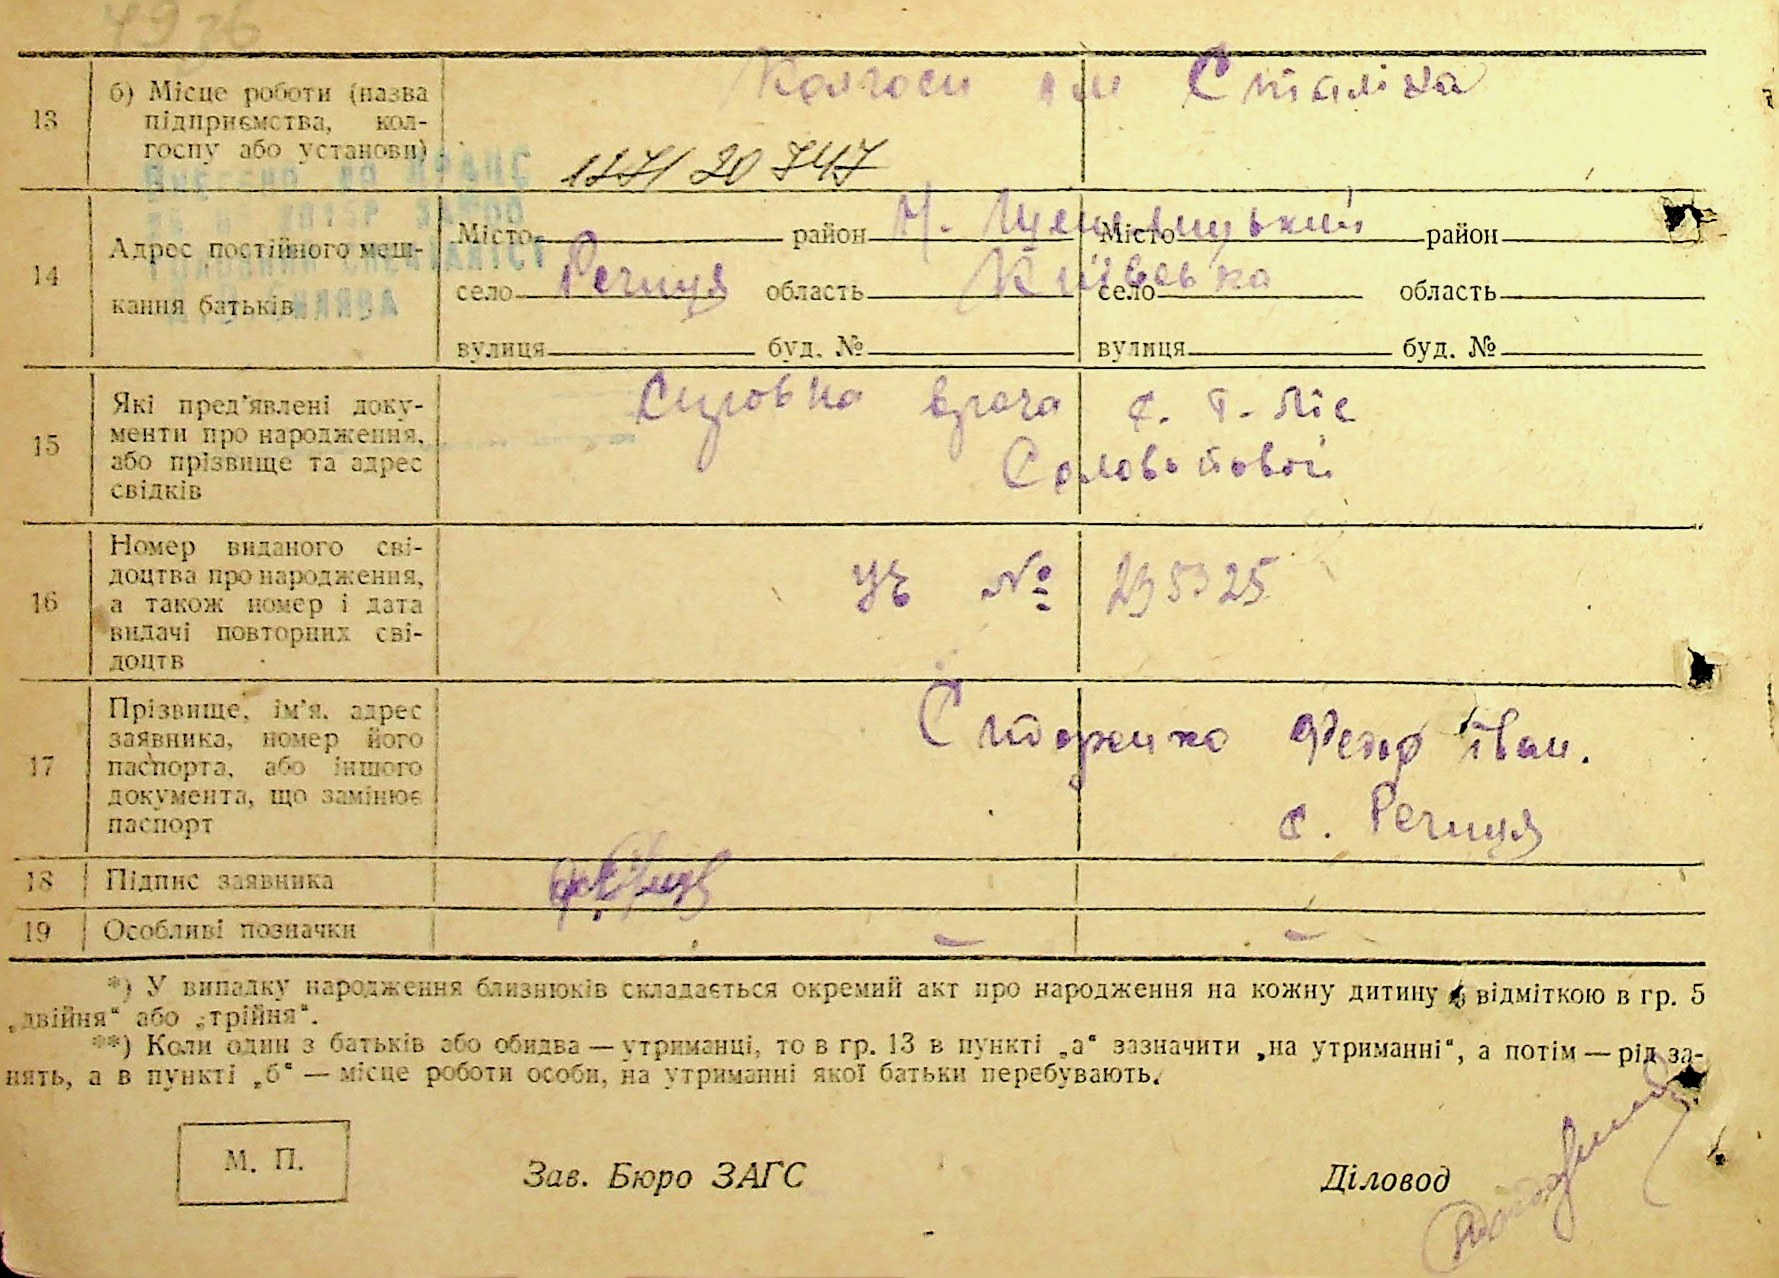 4936
13
б) Місце роботи (назва
підприємства, кол-
госпу або установи)
Колгосп им Сталіна
1271 20747
Внесено до ДРАЦС
14
Адрес постійного меш-
кання батьків
Місто район М. Місто район
село Речиця область Київська село область
вулиця буд. № вулиця буд. №
15
Які пред'явлені доку-
менти про народження,
або прізвище та адрес
свідків
врача с. Т-Ліс
Соловьйовой
16
Номер виданого сві-
доцтва про народження,
а також номер і дата
видачі повторних сві-
доцтв
УЪ № 295325
17
Прізвище, ім'я, адрес
заявника, номер його
паспорта, або іншого
документа, що замінює
паспорт
Сидоренко Федор Іван.
с. Речиця
18 Підпис заявника
19 Особливі позначки – –
*) У випадку народження близнюків складається окремий акт про народження на кожну дитину з відміткою в гр. 5
„двійня“ або „трійня“.
**) Коли один з батьків або обидва — утриманці, то в гр. 13 в пункті „а“ зазначити „на утриманні“, а потім — рід за-
нять, а в пункті „б“ — місце роботи особи, на утриманні якої батьки перебувають.
М. П.
Зав. Бюро ЗАГС
Діловод